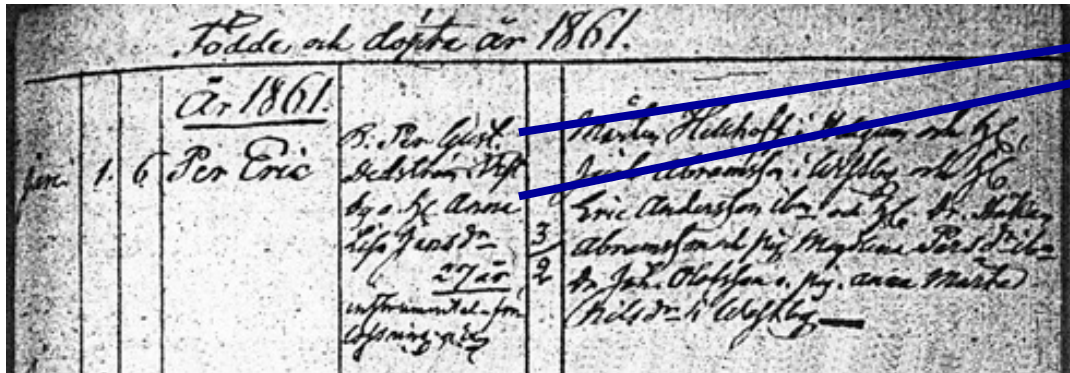 Födde och döpte år 1861.
År 1861.
Jan. 1. 6 Per Eric
B. Per Gust.
Dedström i West
by o. h. Anna
Lisa Jansdr
27 år
instrumental-för
lossning
3/2
Mårten Hekhoff i och h.
Abramsson i Westby och h.
Eric Andersson ibm och h. Dr. Håkan
Abramsson och pig. Magdalena Persdr ibm
dr. Joh. Olofsson o. pig. Anna Märta
Nilsdr i Westby